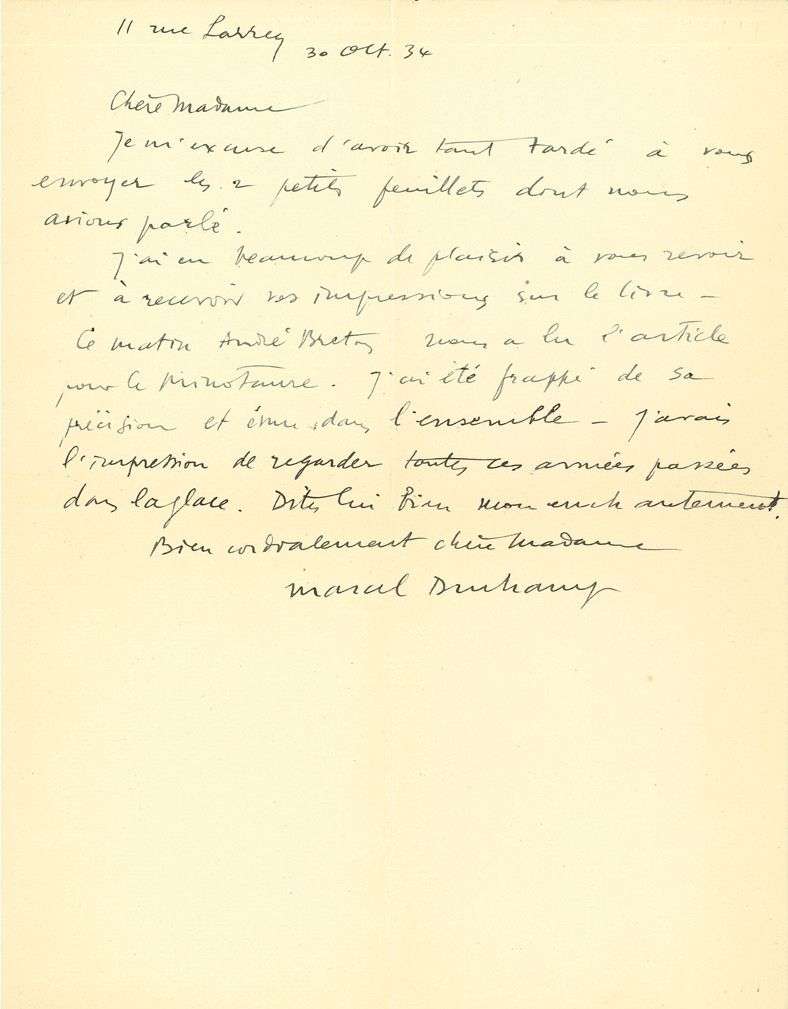 11 rue Larrey
30 Oct. 34
Chère Madame
Je m'excuse d'avoir tant tardé à vous
envoyer les 2 petits feuillets dont nous
avions parlé.
J'ai eu beaucoup de plaisir à vous revoir
et à recevoir vos impressions sur le livre –
Ce matin André Breton nous a lu l'article
pour le Minotaure. J'ai été frappé de sa
précision et ému dans l'ensemble – J'avais
l'impression de regarder toutes ces années passées
dans la glace. Dites lui bien mon enchantement.
Bien cordialement chère Madame
Marcel Duchamp